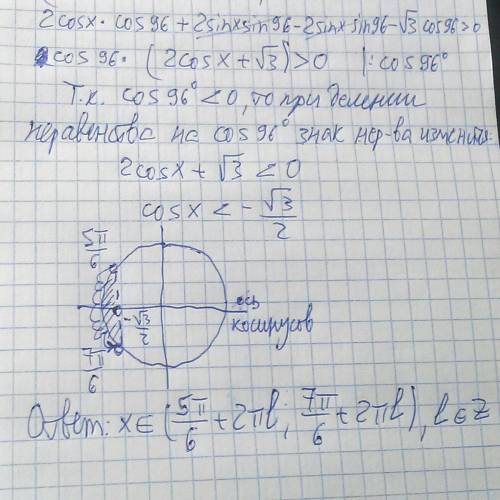 2cosx·cos96+2sinxsin96-2sinxsin96-√3cos96>0
cos96·(2cosx+√3)>0 |:cos96°
Т.к. cos96°<0, то при делении
неравенства на cos96° знак нер-ва изменится
2cosx+√3<0
cosx<-√3/2
5π/6
ось
-√3/2 косинусов
7π/6
Ответ: x∈(5π/6+2πl; 7π/6+2πl), l∈Z